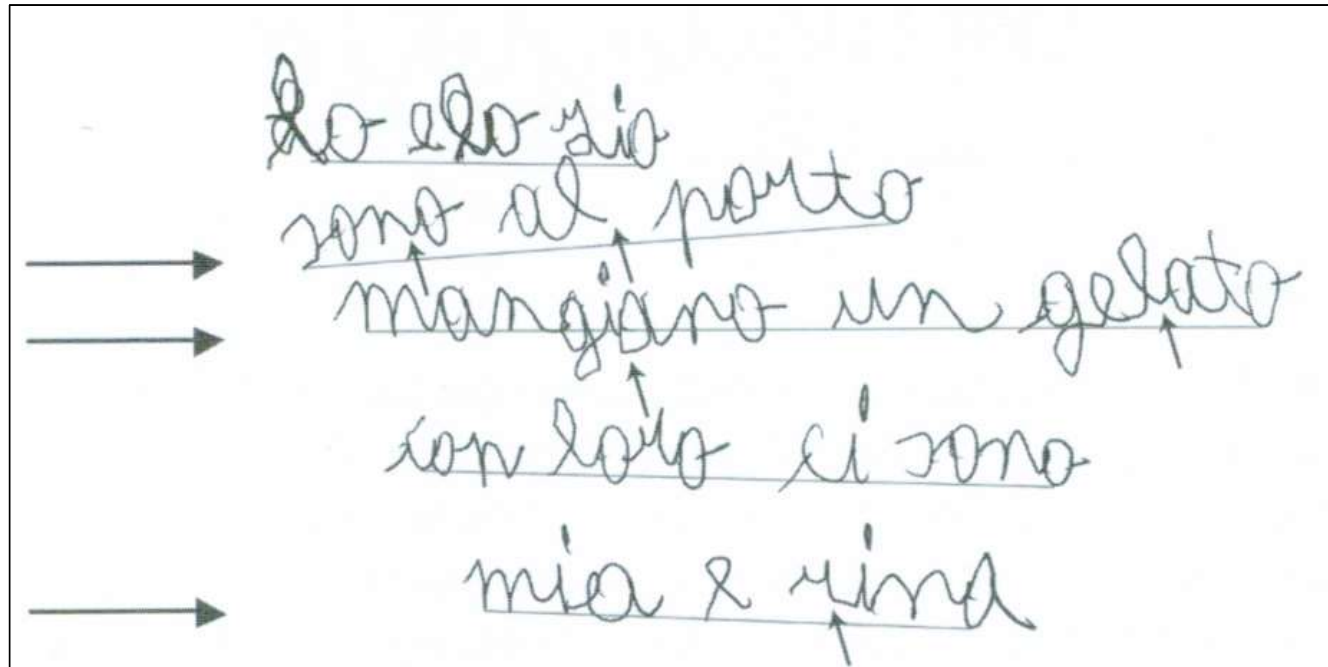 Lo elo zio
sono al porto
mangiano un gelato
con loro ci sono
mia e rina